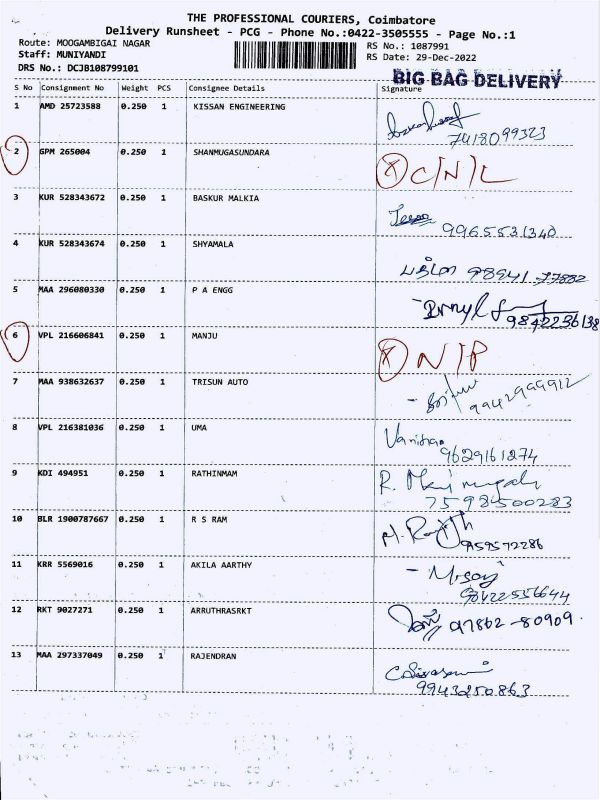 THE PROFESSIONAL COURIERS, Coimbatore
Delivery Runsheet - PCG - Phone No.:0422-3505555 - Page No.:1
Route: MOOGAMBIGAI NAGAR RS No.: 1087991
Staff: MUNIYANDI RS Date: 29-Dec-2022
DRS No.: DCJB108799101
BIG BAG DELIVERY
S No Consignment No Weight PCS Consignee Details Signature
1 AMD 25723588 0.250 1 KISSAN ENGINEERING
7418099323
2 GPM 265004 0.250 1 SHANMUGASUNDARA X C/N/L
3 KUR 528343672 0.250 1 BASKUR MALKIA
9965531340
4 KUR 528343674 0.250 1 SHYAMALA
98941 77882
5 MAA 296080330 0.250 1 P A ENGG
9842236138
6 VPL 216606841 0.250 1 MANJU X N/P
7 MAA 938632637 0.250 1 TRISUN AUTO
9942999912
8 VPL 216381036 0.250 1 UMA Vanitha
9629161274
9 KDI 494951 0.250 1 RATHINMAM
7598500283
10 BLR 1900787667 0.250 1 R S RAM
11 KRR 5569016 0.250 1 AKILA AARTHY
98422556644
12 RKT 9027271 0.250 1 ARRUTHRASRKT 97862-80909
13 MAA 297337049 0.250 1 RAJENDRAN
9943250863